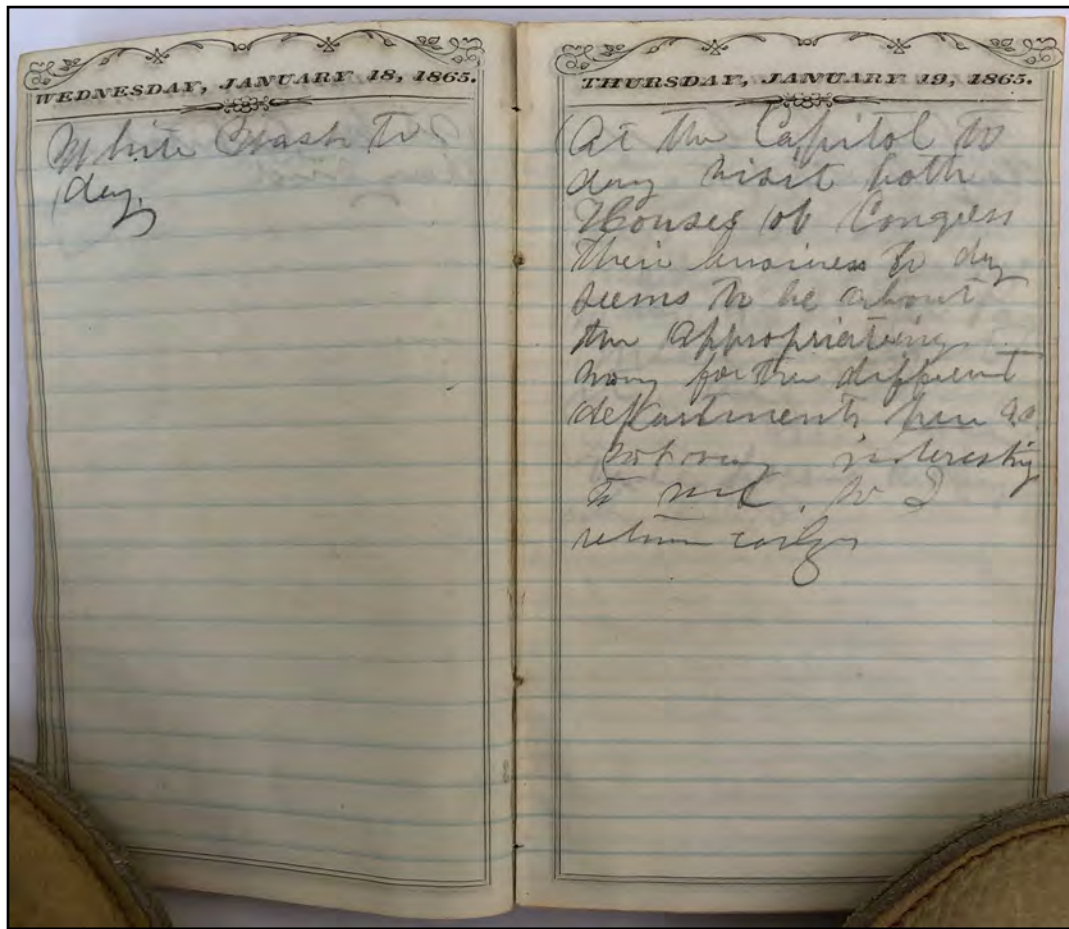 WEDNESDAY, JANUARY 18, 1865.
White Wash to
day.
THURSDAY, JANUARY 19, 1865.
At the Capitol to
day visit both
Houses of Congress
their business to day
seems to be about
the appropriating
mony for the different
departments
not very interesting
to me. so I
return early